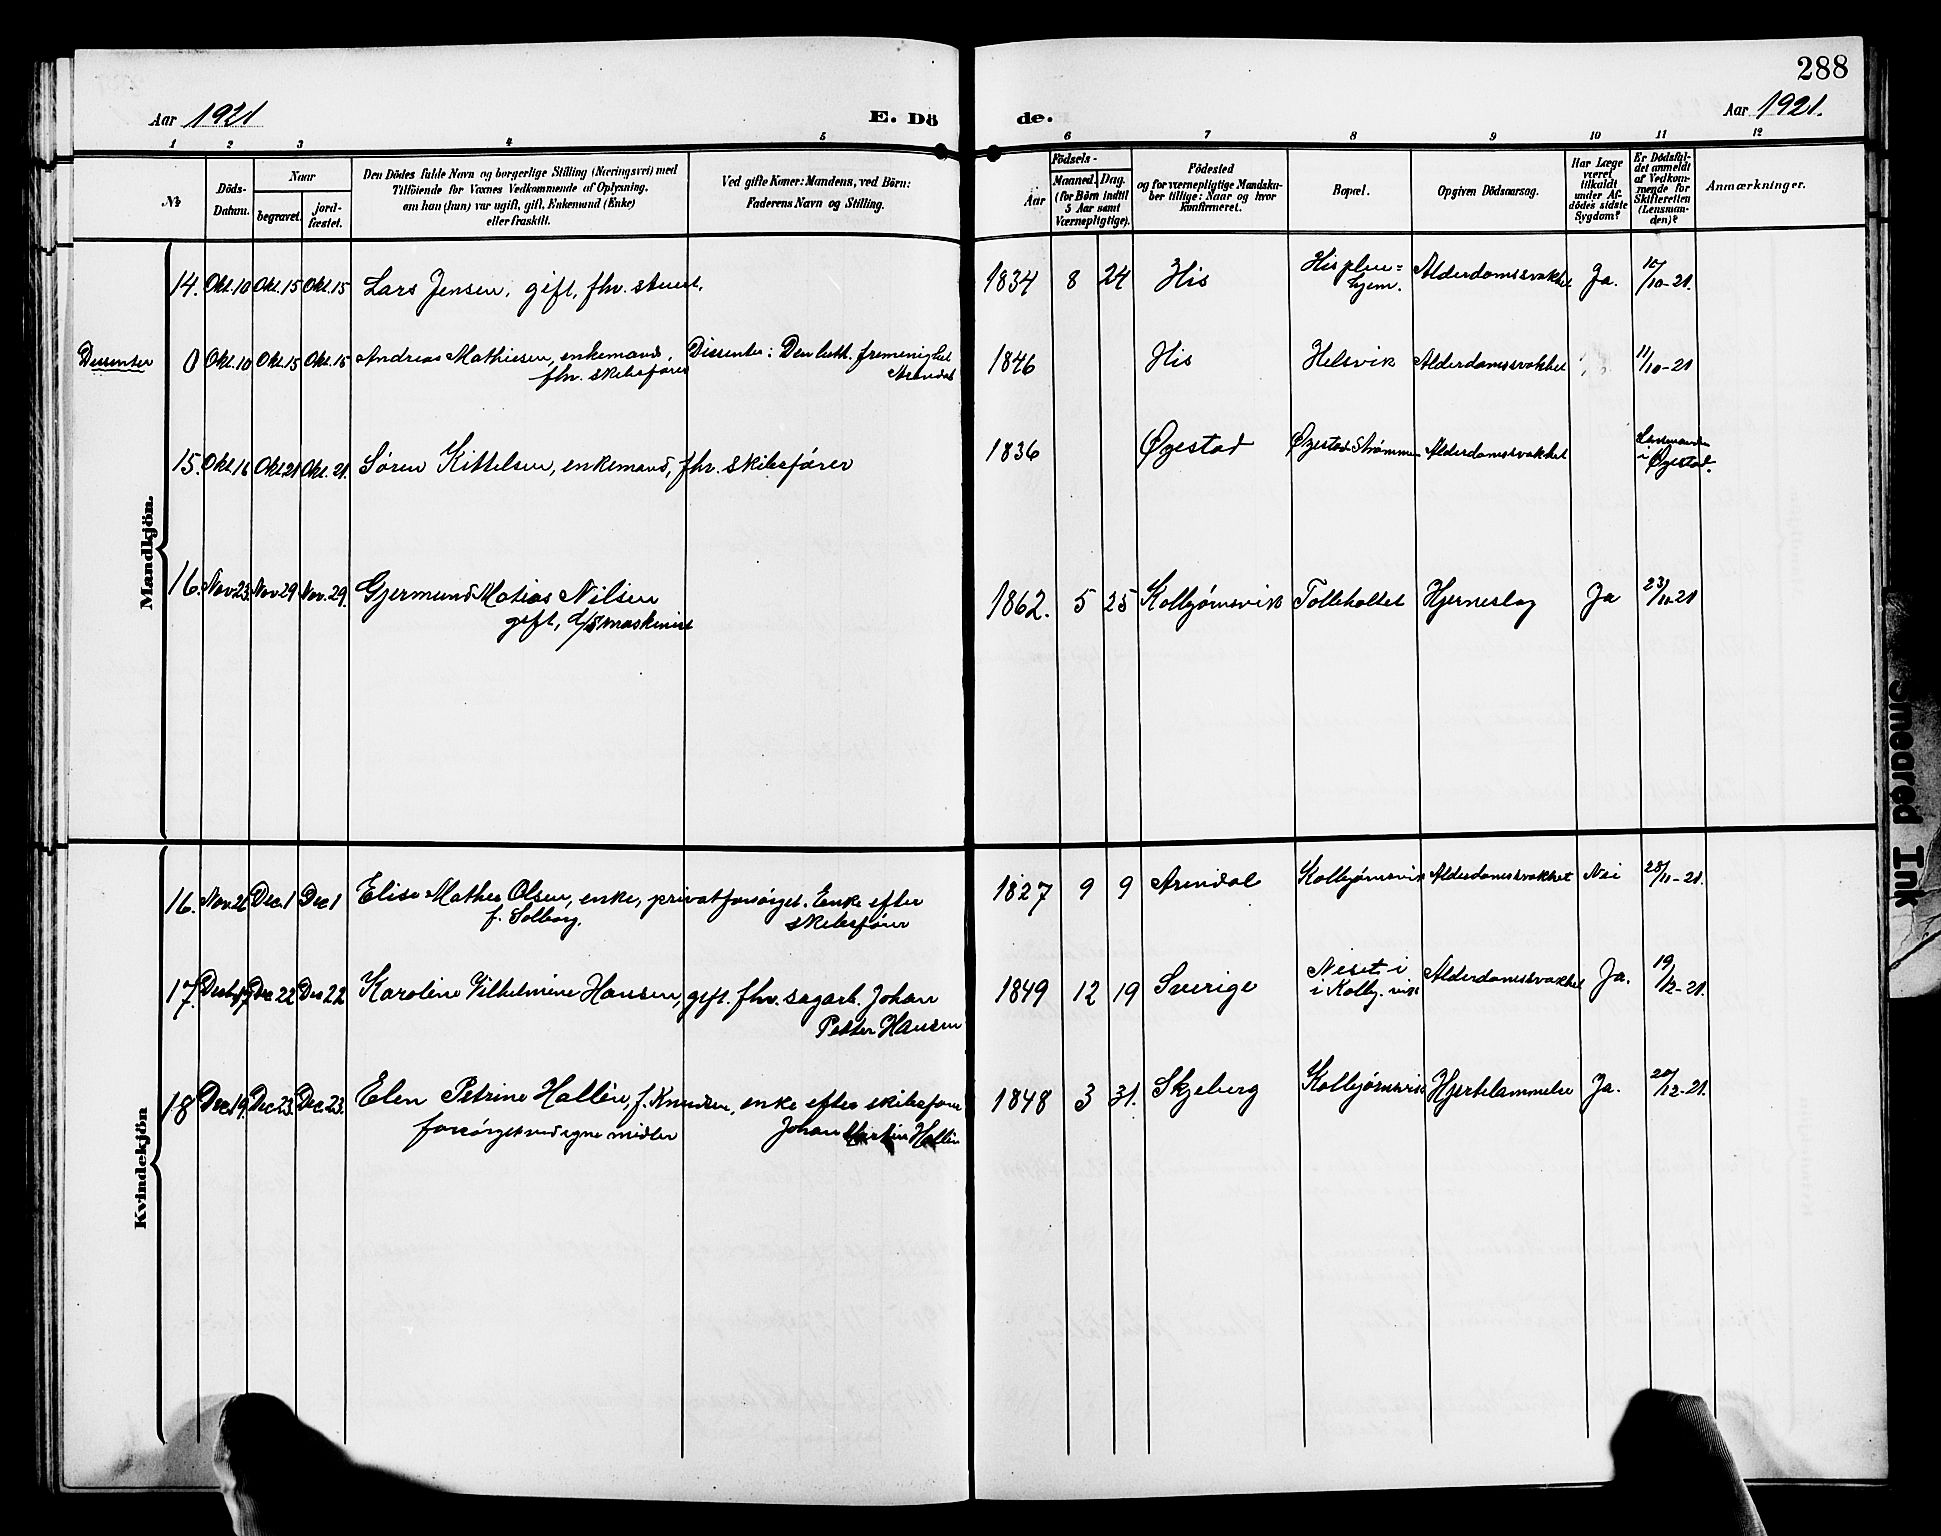 288
Aar 1921
E. Dö
de.
Aar 1921.
1 2 3 4 5 6 7 8 9 10 11 12
No
Döds-
Datum.
Naar
begravet.
jord-
fæstet.
Den Dödes fulde Navn og borgerlige Stilling (Næringsvei) med
Tilföiende for Voxnes Vedkommende af Oplysning,
om han (hun) var ugift, gift, Enkemand (Enke)
eller fraskilt.
Ved gifte Koner: Mandens, ved Börn:
Faderens Navn og Stilling.
Födsels-
Aar
Maaned. Dag.
(for Börn indtil
5 Aar samt
Værnepligtige).
Födested
og for værnepligtige Mandska-
ber tillige: Naar og hvor
konfirmeret.
Bopæl.
Opgiven Dödsaarsag.
Har Læge
været
tilkaldt
under Af-
dödes sidste
Sygdom?
Er Dödsfal-
det anmeldt
af Vedkom-
mende for
Skifteretten
(Lensman-
den)?
Anmærkninger.
Mandkjön.
14. Okt. 10 Okt. 15 Okt. 15 Lars Jensen, gift, fhv. stuert. 1834 8 24 His His pleie=
hjem. Alderdomssvakhet Ja. 10/10-21.
Dissenter 0 Okt. 10 Okt. 15 Okt. 15 Andreas Mathiesen, enkemand, Dissenter: Den luth. fremenighet 1846 His Helsvik Alderdomssvakhet 11/10-21
fhv. skibsfører Arendal
15. Okt. 16 Okt. 21 Okt. 21. Søren Kittelsen, enkemand, fhv. skibsfører 1836 Øyestad Øyestad Strømmen Alderdomssvakhet Lensmanden
i Øyestad.
16. Nov. 23. Nov. 29 Nov. 29. Gjermund Matias Nilsen 1862. 5 25 Kolbjørnsvik Tolleholtet Hjerneslag Ja 23/11-21
gift, d/s maskinist
Kvindekjön
16. Nov. 26 Dec. 1 Dec 1 Elise Mathea Olsen, enke, privat forsørget. Enke efter 1827 9 9 Arendal Kolbjørnsvik Alderdomssvakhet Nei 28/11-21.
f. Solberg. skibsfører
17. Dec. 17 Dec 22 Dec 22 Karoline Vilhelmine Hansen, gift. fhv. sagarb. Johan 1849 12 19 Sverige Neset i
i Kolbj. vik Alderdomssvakhet Ja. 19/12-21.
Petter Hansen
18 Dec. 19. Dec. 23. Dec. 23. Elen Petrine Hallèn, f. Knudsen, enke efter skibsfører 1848 3 31. Skjeberg Kolbjørnsvik Hjertelammelse Ja. 20/12-21.
forsørget ved egne midler Johan Martin Hallèn
Smeared Ink